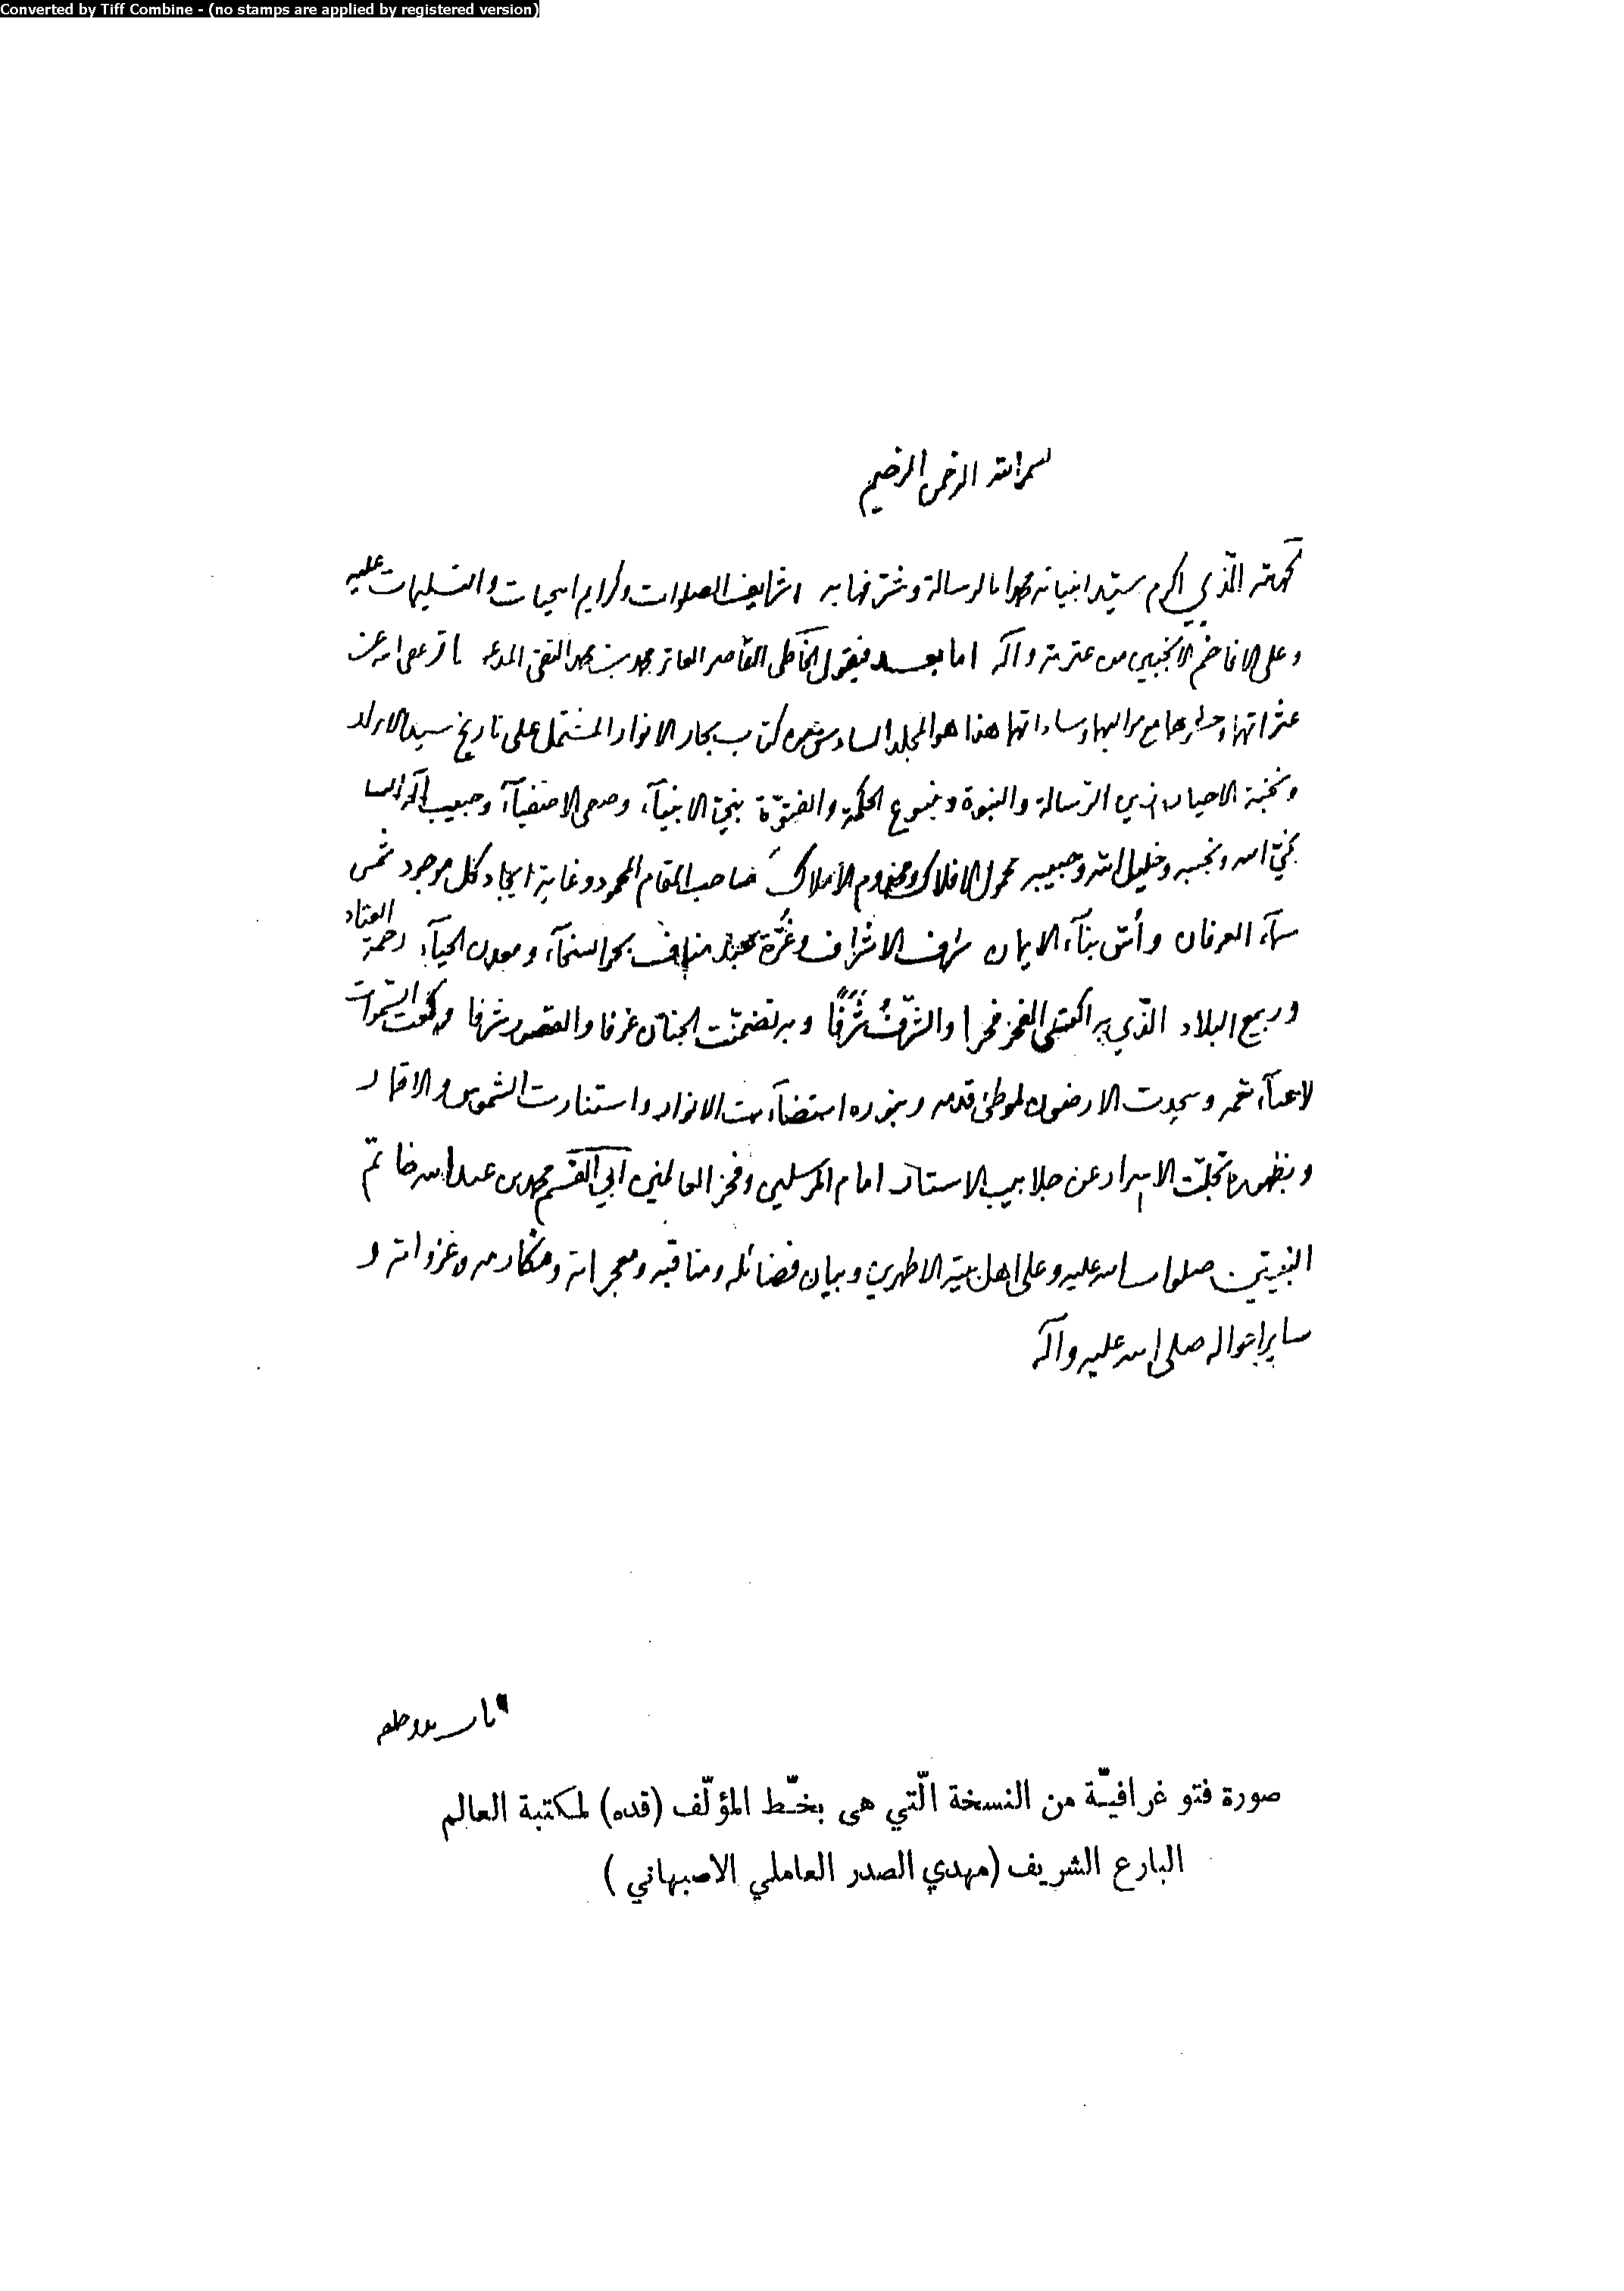 Converted by Tiff Combine - (no stamps are applied by registered version)
بسم الله الرحمن الرحيم
الحمد لله الذي اكرم سيد انبيائه محمدا بالرسالة وشرفها به شرايف الصلوات وكرايم التحيات والتسليمات عليه
وعلى الافاخم الانجبين من عترته وآله اما بعد فيقول الخاطى القاصر العاثر محمد بن محمد التقى المدعو باقر عفى الله عن
عثراتهما وحشرهما مع مواليهما وساداتهما هذا هو المجلد السادس من كتاب بحار الانوار المشتمل على تاريخ سيد الابرار
ونخبة الاخيار زين الرسالة والنبوة وينبوع الحكمة والفتوة نبي الانبيآء وصفى الاصفيآء وحبيب اله السما
نجيّ الله ونجيبه وخليل الله وحبيبه محمول الافلاك ومخدوم الأملاك صاحب المقام المحمود وغاية ايجاد كل موجود شمس
سمآء العرفان وأسّ بنآء الايمان شرف الاشراف وغُرّة عبد مناف بحر السخآء ومعدن الحيآء رحمة العباد
وربيع البلاد الّذي به اكتسى الفخر فخرا والشّرفُ شَرَفًا وبه تضمنّت الجنان غرفا والقصور شرفا ركعت السّموات
لاعبآء نعمه وسجدت الارضون لموطئ قدمه وبنوره استضآءت الانوار واستنارت الشموس والاقمار
وبظهوره تجلّت الاسرار عن جلابيب الاستار امام المرسلين وفخر العالمين أبي القسم محمد بن عبد الله خاتم
النبيّين صلوات الله عليه وعلى اهل بيته الاطهرين وبيان فضائله ومناقبه ومعجزاته ومكارمه وغزواته و
ساير احواله صلى الله عليه وآله
صورة فتو غرافيّة من النسخة الّتي هى بخّط المؤلّف (قده) لمكتبة العالم
البارع الشريف (مهدي الصدر العاملي الاصبهاني )